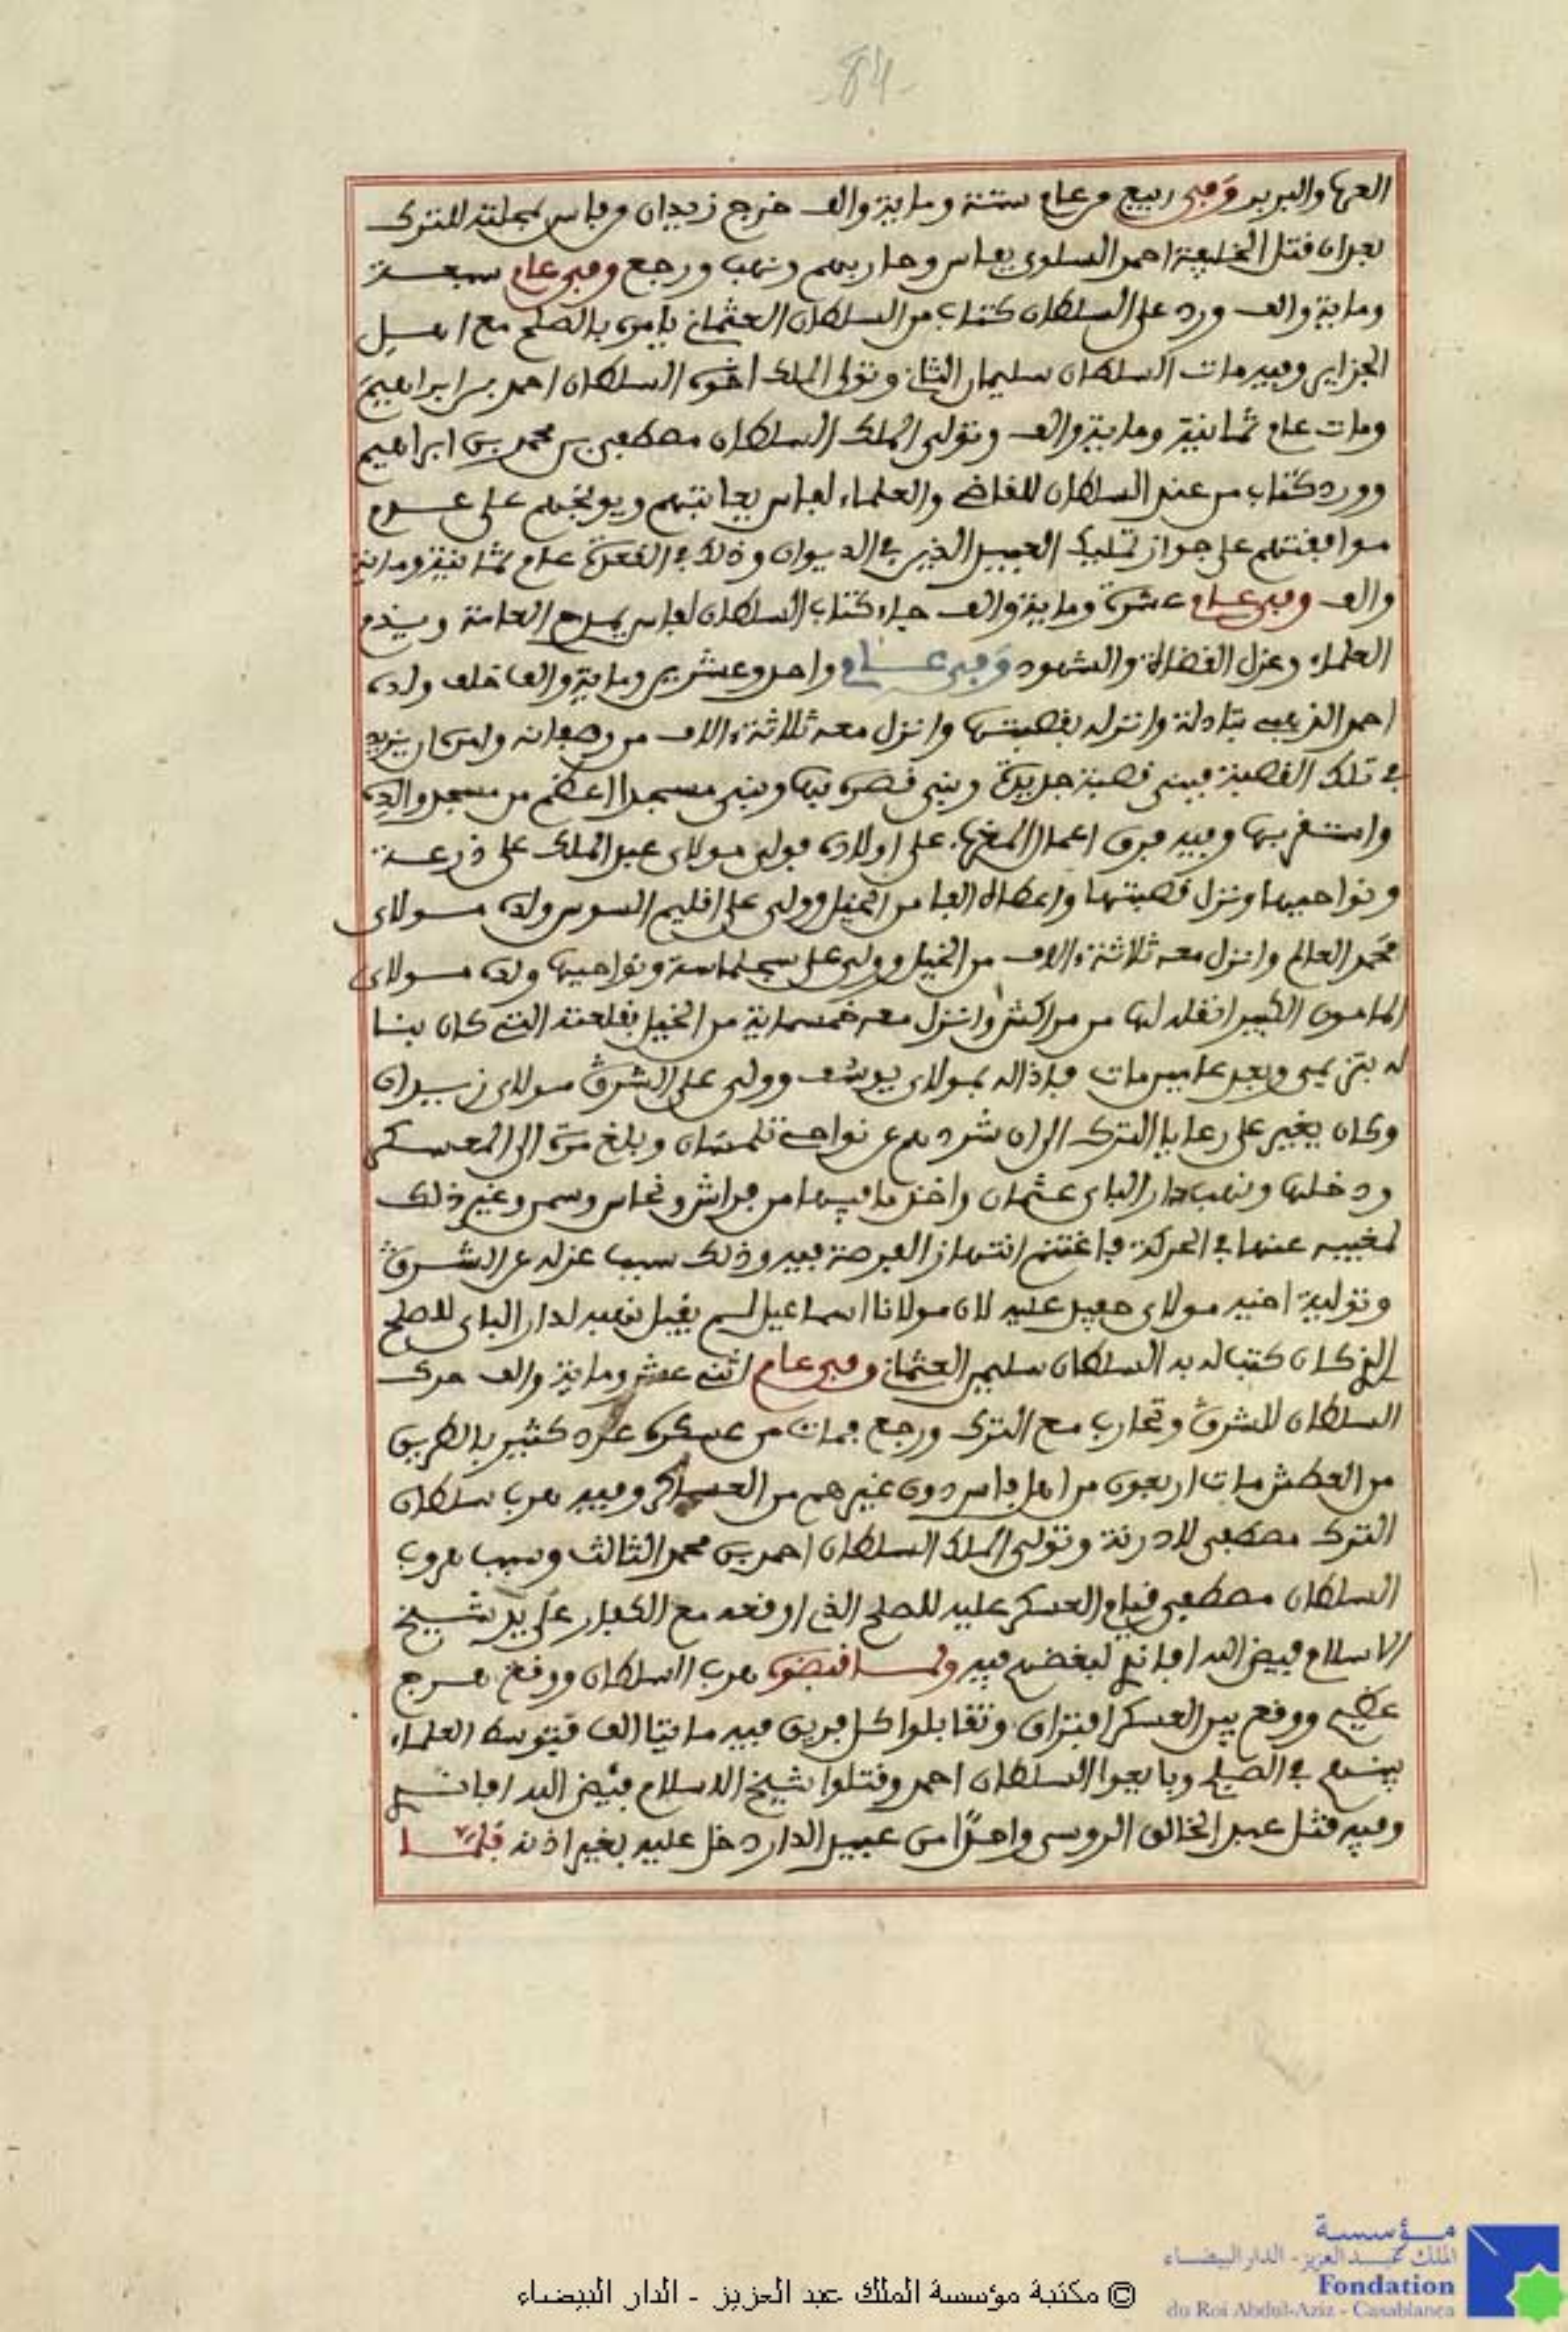 84
العرب والبربر وفي ربيع من عام ستة وماية والف خرج زيدان من فاس بمحلته للترك
بعد ان قتل الخليفة احمد السلوي بفاس وحاربهم ونهب ورجع وفي عام سبعة
وماية والف ورد على السلطان كتاب من السلطان العثماني يامره بالصلح مع اهل
الجزاير وفيه مات السلطان سليمان الثاني وتولى الملك اخوه السلطان احمد بن ابراهيم
ومات عام ثمانية وماية والف وتولى الملك السلطان مصطفى بن محمد بن ابراهيم
وورد كتاب من عند السلطان للقاضي والعلماء لفاس يعاتبهم ويوبخهم على عدم
موافقتهم على جواز تمليك العبيد الذين في الديوان وذلك في القعدة عام ثمانية وماية
والف وفي عام عشرة وماية والف جاء كتاب السلطان لفاس يمدح العامة ويذم
العلماء وعزل القضاة والشهود وفي عام واحد وعشرين وماية والف خلف ولده
احمد الذهبي بتادلة وانزله بقصبتها وانزل معه ثلاثة ءالاف من وصفانه وامره ان يزيد
في تلك القصبة فبنى قصبة جديدة وبنى قصره بها وبنى مسجدا اعظم من مسجد والده
واستقر بها وفيه فرق اعمال المغرب على اولاده فولى مولاي عبد الملك على درعة
ونواحيها ونزل قصبتها واعطاه الفا من الخيل وولى على اقليم السوس ولده مولاي
محمد العالم وانزل معه ثلاثة ءالاف من الخيل وولى على سجلماسة ونواحيها ولده مولاي
المامون الكبير انقله لها من مراكش وانزل معه خمسماية من الخيل بقلعته التي كان بنا
له بتزيمي وبعد عامين مات فاذاله بمولاي يوسف وولى على الشرق مولاي زيدان
وكان يغير على رعايا الترك الى ان شردهم عن نواحي تلمسان وبلغ مرة الى المعسكر
ودخلها ونهب دار الباي عثمان واخذ ما فيها من فراش ونحاس وسمن وغير ذلك
لمغيبه عنها في الحركة فاغتنم انتهاز الفرصة فيه وذلك سبب عزله عن الشرق
وتولية اخيه مولاي حفيد عليه لان مولانا اسماعيل لم يقبل نهبه لدار الباي للصلح
الذي كان كتب له به السلطان سليم العثماني وفي عام اثني عشر وماية والف حرك
السلطان للشرق وتحارب مع الترك ورجع فمات من عسكره عدد كثير بالطريق
من العطش مات اربعون من اهل فاس دون غيرهم من العساكر وفيه هرب سلطان
الترك مصطفى للادرنة وتولى الملك السلطان احمد بن محمد الثالث وسبب هروب
السلطان مصطفى قيام العسكر عليه للصلح الذي اوقعه مع الكفار على يد شيخ
الاسلام فيض الله افانتي لبغضهم فيه ولما قبضوه هرب السلطان ووقع هرج
عظيم ووقع بين العسكر افتراق وتقابلوا كل فريق فيه مايتا الف فتوسط العلماء
بينهم في الصلح وبايعوا السلطان احمد وقتلوا شيخ الاسلام فيض الله افانتي
وفيه قتل عبد الخالق الروسي واحدا من عبيد الدار دخل عليه بغير اذنه فلما
مؤسسة
الملك عبد العزيز - الدار البيضاء
Fondation
du Roi Abdul-Aziz - Casablanca
© مكتبة مؤسسة الملك عبد العزيز - الدار البيضاء